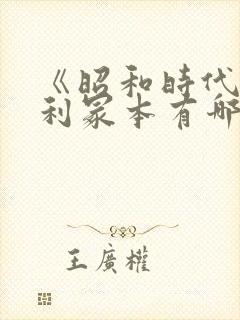 《昭和時代
利冢本有哪
王廣權